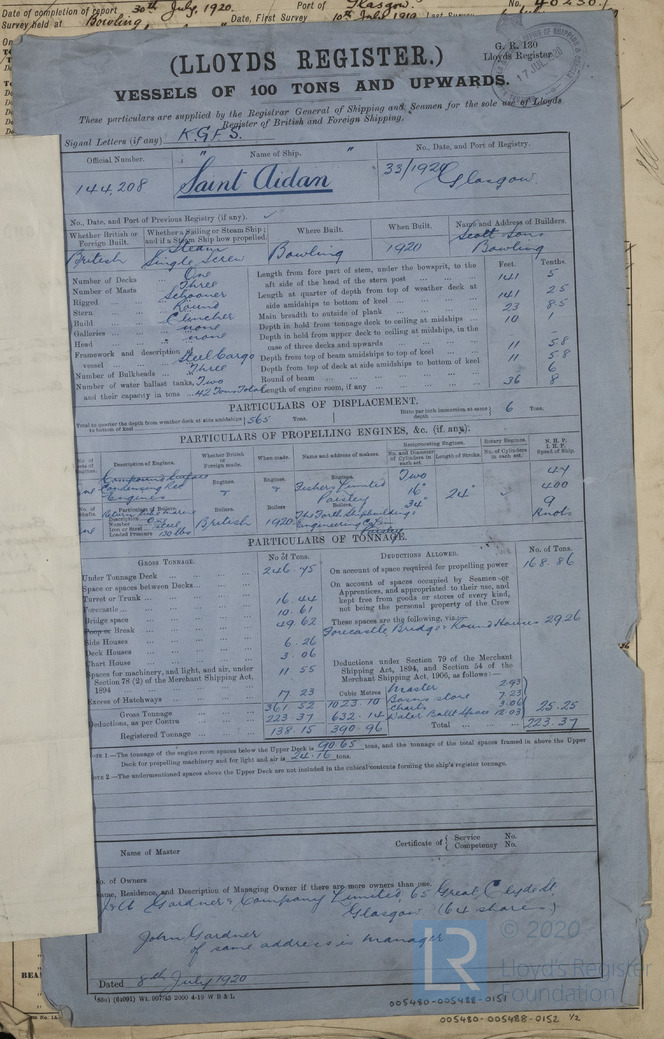 Date of completion of report 30th July, 1920. Port of Glasgow. No. 40230.
Survey held at Bowling, Date, First Survey 10th July 1919 Last Survey
(LLOYDS REGISTER.)
G. R. 130
Lloyds Register
17 JUL 20
VESSELS OF 100 TONS AND UPWARDS.
These particulars are supplied by the Registrar General of Shipping and Seamen for the sole use of Lloyds
Register of British and Foreign Shipping.
Signal Letters (if any) K.G.F.S.
Official Number. Name of Ship. No., Date, and Port of Registry.
144,208 " Saint Aidan " 33/1920 Glasgow.
No., Date, and Port of Previous Registry (if any).
Whether British or Foreign Built. Whether a Sailing or Steam Ship; and if a Steam Ship how propelled. Where Built. When Built. Name and Address of Builders.
British Steam Single Screw Bowling 1920 Scott Sons Bowling
Feet. Tenths.
Number of Decks One
Number of Masts Three
Rigged Schooner
Stern Round
Build Clincher
Galleries none
Head none
Framework and description of vessel Steel Cargo
Number of Bulkheads Three
Number of water ballast tanks, and their capacity in tons Two 42 Tons Total
Length from fore part of stem, under the bowsprit, to the aft side of the head of the stern post 141 5
Length at quarter of depth from top of weather deck at side amidships to bottom of keel 141 25
Main breadth to outside of plank 23 8.5
Depth in hold from tonnage deck to ceiling at midships 10 1
Depth in hold from upper deck to ceiling at midships, in the case of three decks and upwards -
Depth from top of beam amidships to top of keel 11 58
Depth from top of deck at side amidships to bottom of keel 11 58
Round of beam 6
Length of engine room, if any 36 8
PARTICULARS OF DISPLACEMENT.
Total to quarter the depth from weather deck at side amidships to bottom of keel 565 Tons. Ditto per inch immersion at same depth 6 Tons.
PARTICULARS OF PROPELLING ENGINES, &c. (if any).
No. of sets of Engines. Description of Engines. Whether British or Foreign made. When made. Name and address of makers. Reciprocating Engines. Rotary Engines. N. H. P.
No. and Diameter of Cylinders in each set. Length of Stroke. No. of Cylinders in each set. I. H. P. Speed of Ship.
One Compound Surface Condensing Engines Engines. Engines. Engines. Fishers Limited Paisley Two 16" 34" 24" 44 400 9 Knots
No. of Shafts. Particulars of Boilers Description Number One Iron or Steel Steel Loaded Pressure 130 lbs
Boilers. British Boilers 1920 Boilers The Forth Shipbuilding & Engineering
PARTICULARS OF TONNAGE.
GROSS TONNAGE. No. of Tons. DEDUCTIONS ALLOWED. No. of Tons.
Under Tonnage Deck 246.45
Space or spaces between Decks
Turret or Trunk 16.44
Forecastle 10.61
Bridge space 49.62
Poop or Break
Side Houses 6.26
Deck Houses 3.06
Chart House
Spaces for machinery, and light, and air, under Section 78 (2) of the Merchant Shipping Act, 1894 11 55
Excess of Hatchways 17 23
Cubic Metres
Gross Tonnage 361 52 1023.10
Deductions, as per Contra 223 37 632.14
Registered Tonnage 138.15 390.96
On account of space required for propelling power 168.86
On account of spaces occupied by Seamen or Apprentices, and appropriated to their use, and kept free from goods or stores of every kind, not being the personal property of the Crew
These spaces are the following, viz.:
Forecastle, Bridge & Round Houses 29.26
Deductions under Section 79 of the Merchant Shipping Act, 1894, and Section 54 of the Merchant Shipping Act, 1906, as follows:—
Master 2.93
Bosns store 7.23
Charts 3.06
Water Ballast Space 12.03
25.25
Total 223.37
NOTE 1.—The tonnage of the engine room spaces below the Upper Deck is 90.65 tons, and the tonnage of the total spaces framed in above the Upper
Deck for propelling machinery and for light and air is 24.16 tons.
NOTE 2.—The undermentioned spaces above the Upper Deck are not included in the cubical contents forming the ship's register tonnage.
Name of Master Certificate of { Service No. Competency No.
No. of Owners
Name, Residence, and Description of Managing Owner if there are more owners than one.
Gardner & Company Limited, 65 Great Clyde St
Glasgow (64 shares)
John Gardner
of same address is manager
Dated 8th July 1920
(64091) Wt. 997/43 2000 4-19 W B & L
LR
© 2020
Lloyd's Register
Foundation
005480-005488-0151
005480-005488-0152 1/2